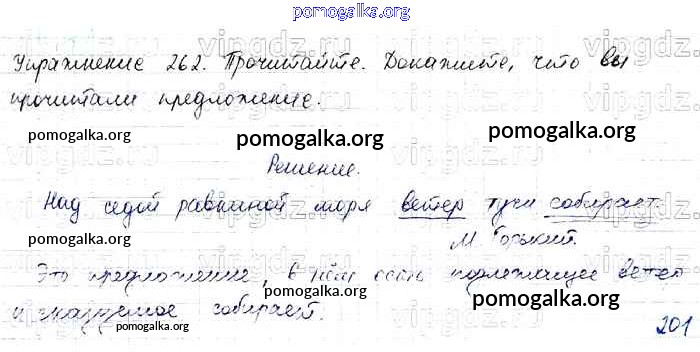 pomogalka.org
Упражнение 262. Прочитайте. Докажите, что вы
прочитали предложение.
pomogalka.org pomogalka.org pomogalka.org
Решение.
Над седой равниной моря ветер тучи собирает.
pomogalka.org pomogalka.org М. Горький.
Это предложение, в нём есть подлежащее ветер
и сказуемое собирает.
pomogalka.org pomogalka.org
201